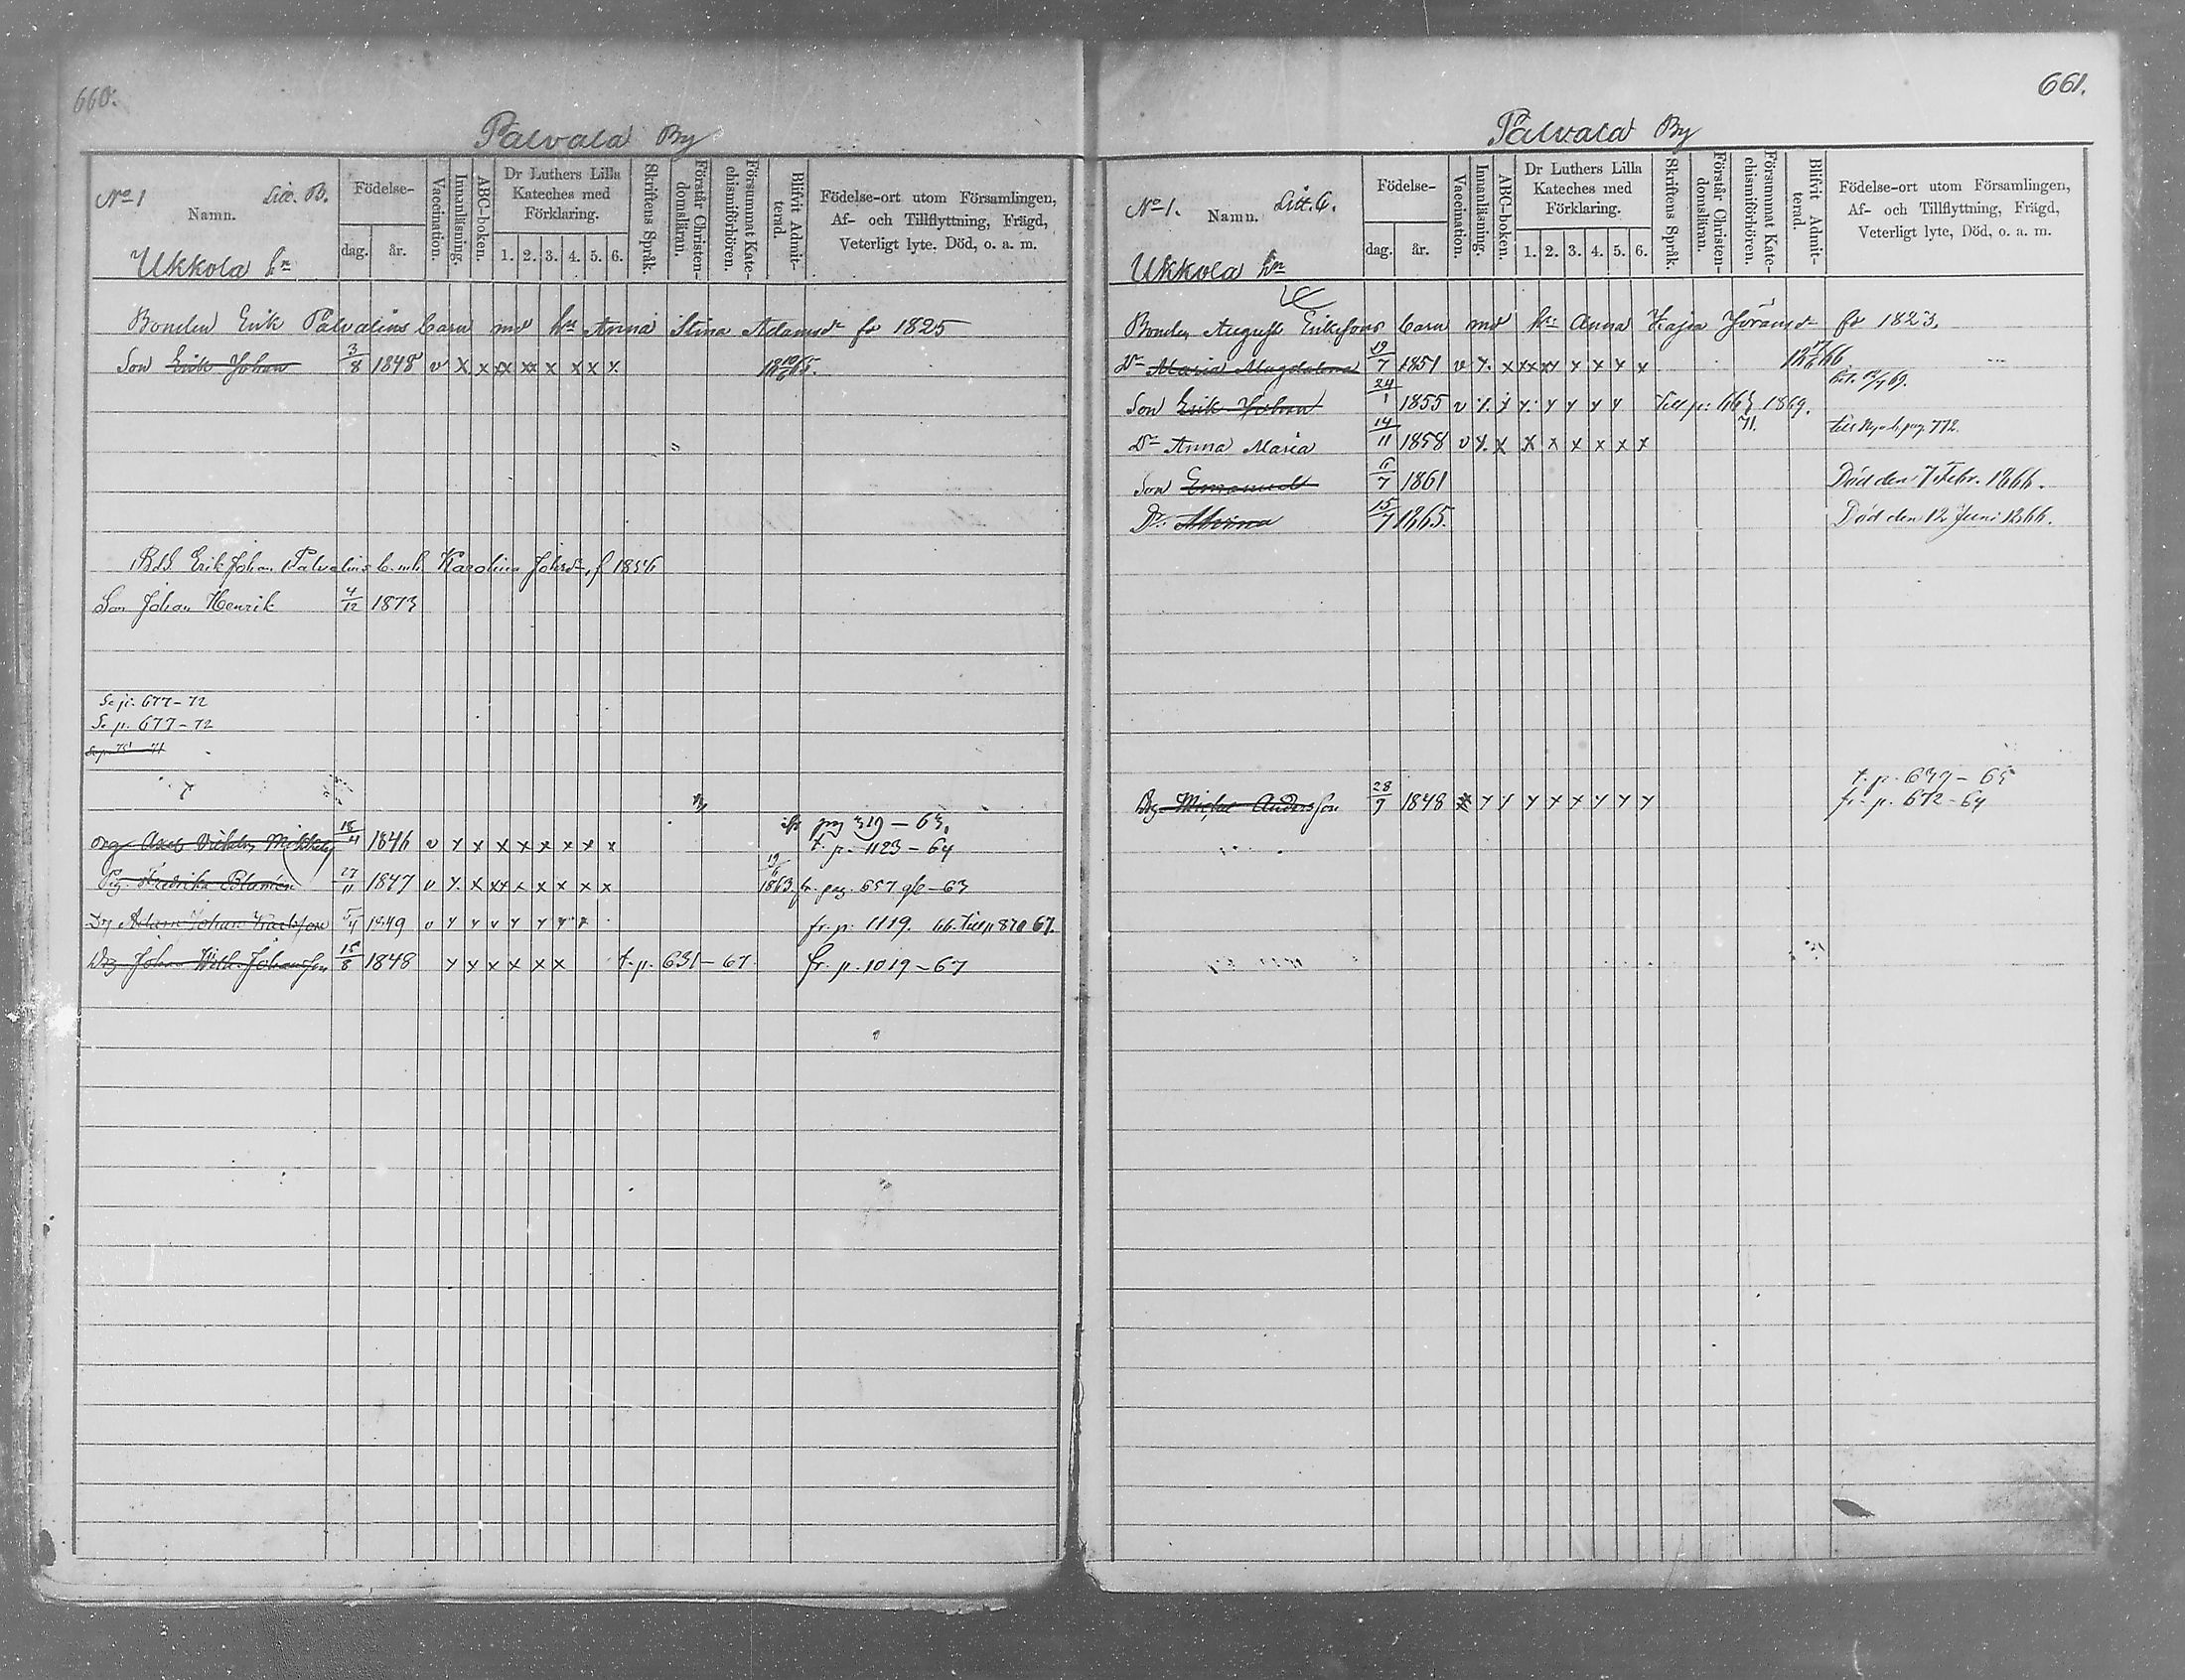 660.
Palvala By
No 1
Litt. B.
Namn.
Ukkola hn
Födelse-
dag.
år.
Vaccination.
Innanläsning.
ABC-boken.
Dr Luthers Lilla
Kateches med
Förklaring.
1. 2. 3. 4. 5. 6.
Skriftens Språk.
Förstår Christen-
domsläran.
Försummat Kate-
chismiförhören.
Blifvit Admit-
terad.
Födelse-ort utom Församlingen,
Af- och Tillflyttning, Frägd,
Veterligt lyte. Död, o. a. m.
Bonden Erik Palvalins barn med hu Anna Stina Adamsdr fr 1825
Son Erik Johan 3/8 1848 v x x xx xx x x x x
Erik Johan Palvalins b. m. h. Karolina Johsdr, f 1856
Son Johan Henrik 4/12 1873
Se p. 677-72
Se p. 677-72
pag 319-63.
1846 v x x x x x x x x t. p. 1123-64
Pig. Fredrika 27/11 1847 v x x xx x x x x x 19/6 1863. fr. pag. 657 63
Johan 1849 v x x v x x x x fr. p. 1119. 67.
Drg Johan Wilh. Johansson 15/8 1848 x x x x x x t. p. 631-67 fr. p. 1019-67
661.
Palvala By
No 1.
Litt. C.
Namn.
Ukkola hn
Födelse-
dag.
år.
Vaccination.
Innanläsning.
ABC-boken.
Dr Luthers Lilla
Kateches med
Förklaring.
1. 2. 3. 4. 5. 6.
Skriftens Språk.
Förstår Christen-
domsläran.
Försummat Kate-
chismiförhören.
Blifvit Admit-
terad.
Födelse-ort utom Församlingen,
Af- och Tillflyttning, Frägd,
Veterligt lyte, Död, o. a. m.
Bonden August Erikssons barn med hu Anna Kajsa Göransdr fr 1823.
Dr Maria Magdalena 19/7 1851 v x x xx xx x x x x
Son Erik Johan 24/1 1855 v x x x x x x x Till p: 1869.
Dr Anna Maria 14/11 1858 v x x x x x x x x pag. 772.
Son Emanuel 6/7 1861 Död den 7 Febr. 1866.
Dr Alvina 15/7 1865. Död den 12 Juni 1866.
t. p. 639-65
Drg Michel Andersson 28/9 1848 x x x x x x x x x fr. p. 672-64